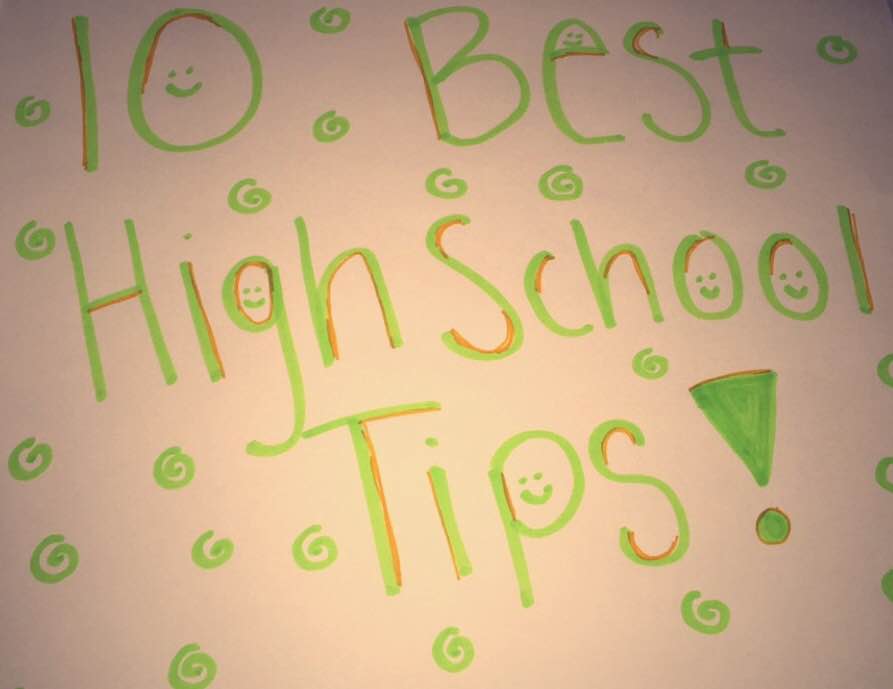 10 Best
High School
Tips!